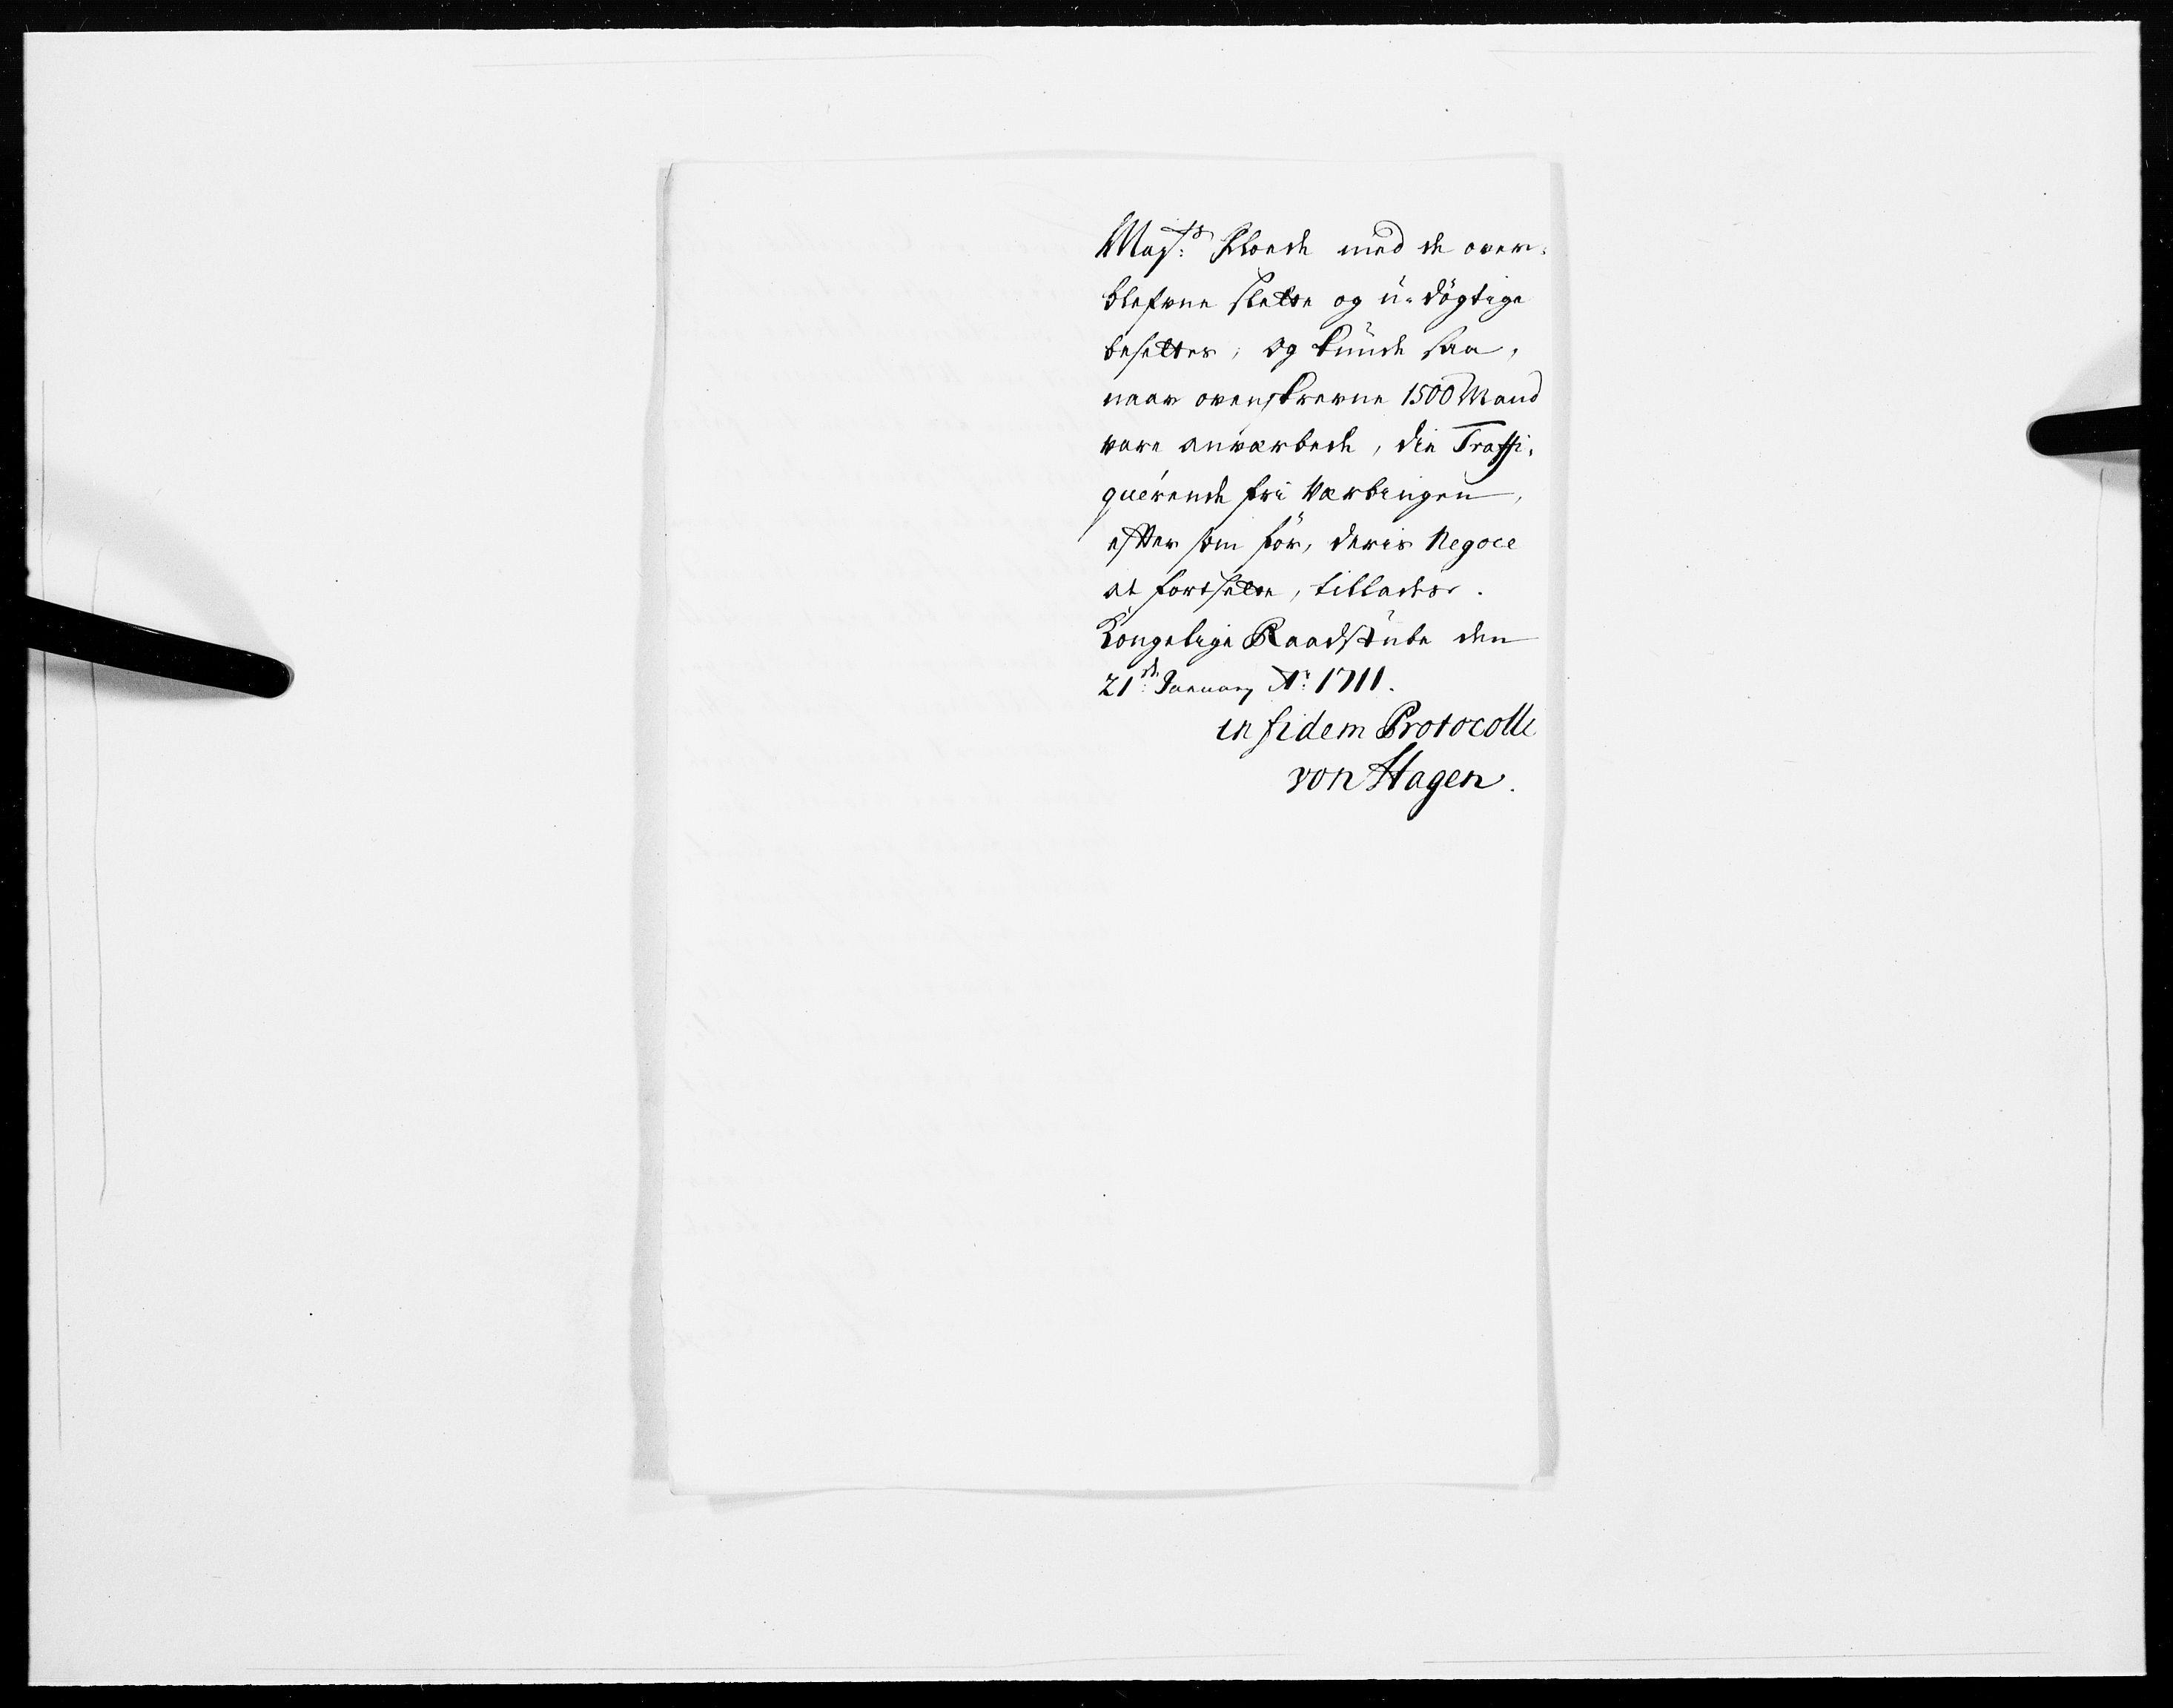 Mayts: Flode med de over-
blefvne slette og u-dögtige
besettes; Og kunde saa,
naar ovenskrevne 1500 Mand
vare anværbede, die Traffi-
querende fri Værbingen,
efter som för, deris Negoce
at fortsette, tillades.
Kongelige Raadstube den
21de: January Ao: 1711.
in fidem Protocolli
von Hagen.